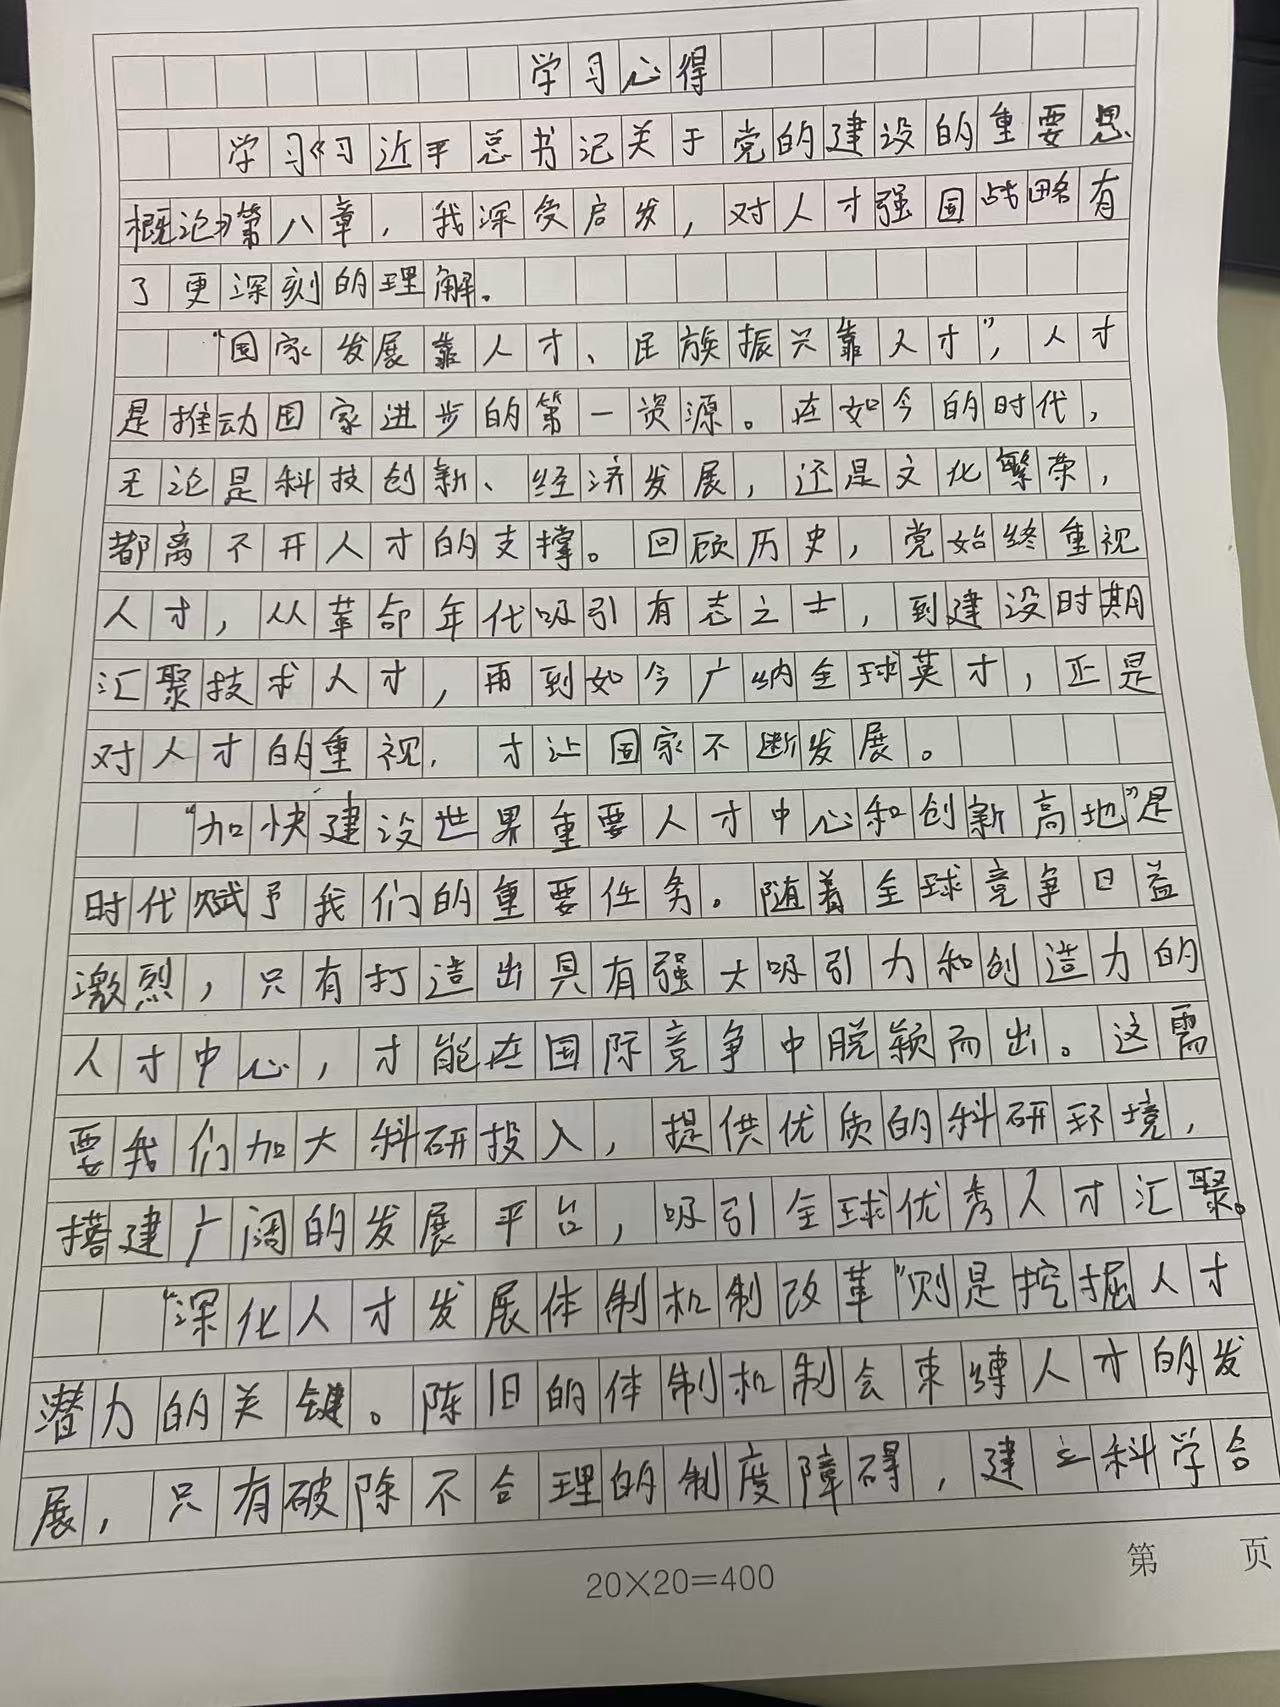 学习心得
学习《习近平总书记关于党的建设的重要思
概论》第八章，我深受启发，对人才强国战略有
了更深刻的理解。
“国家发展靠人才、民族振兴靠人才”，人才
是推动国家进步的第一资源。在如今的时代，
无论是科技创新、经济发展，还是文化繁荣，
都离不开人才的支撑。回顾历史，党始终重视
人才，从革命年代吸引有志之士，到建设时期
汇聚技术人才，再到如今广纳全球英才，正是
对人才的重视，才让国家不断发展。
“加快建设世界重要人才中心和创新高地”是
时代赋予我们的重要任务。随着全球竞争日益
激烈，只有打造出具有强大吸引力和创造力的
人才中心，才能在国际竞争中脱颖而出。这需
要我们加大科研投入，提供优质的科研环境，
搭建广阔的发展平台，吸引全球优秀人才汇聚。
“深化人才发展体制机制改革”则是挖掘人才
潜力的关键。陈旧的体制机制会束缚人才的发
展，只有破除不合理的制度障碍，建立科学合
20×20=400
第 页